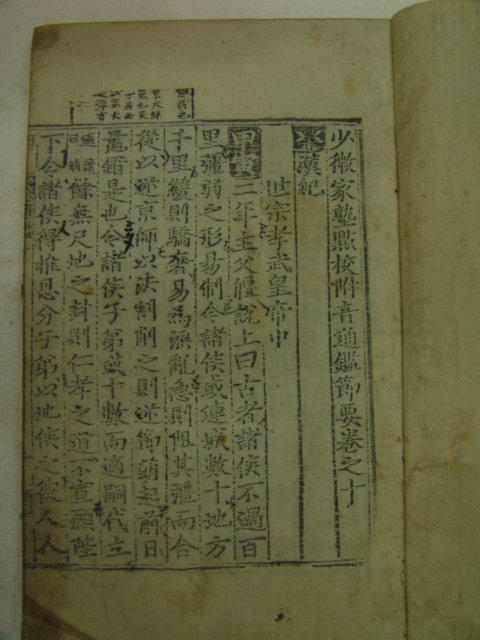 少微家塾點校附音通鑑節要卷之十
漢紀
世宗孝武皇帝中
甲寅二年主父偃說上曰古者諸侯不過百
里彊弱之形易制今諸侯或連城數十地方
千里緩則驕奢易為淫亂急則阻其彊而合
從以逆京師以法制削之則逆節萌起前日
鼂錯是也今諸侯子弟或十數而適嗣代立
餘無尺地之封則仁孝之道不宣願陛
下令諸侯得推恩分子弟以地侯之彼人人